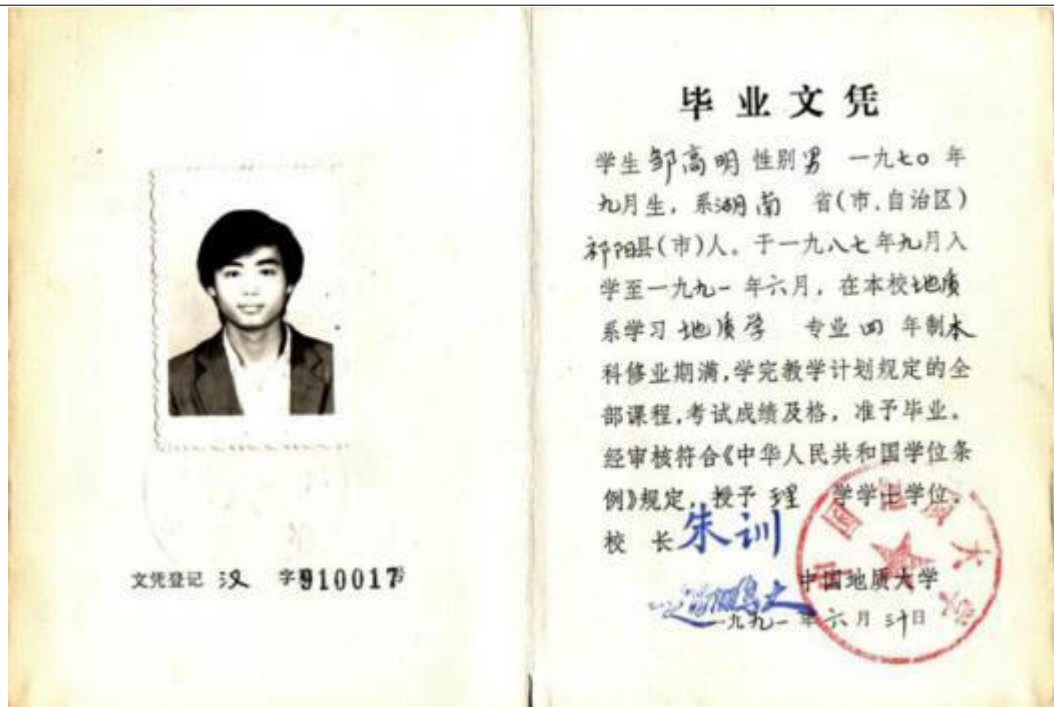 文凭登记 汉 字910017号
毕业文凭
学生邹高明性别男 一九七〇年
九月生，系湖南 省(市、自治区)
祁阳县(市)人。于一九八七年九月入
学至一九九一年六月，在本校地质
系学习地质学 专业四年制本
科修业期满，学完教学计划规定的全
部课程，考试成绩及格，准予毕业。
经审核符合《中华人民共和国学位条
例》规定，授予理 学学士学位。
校 长 朱训
赵鹏大
中国地质大学
一九九一年六月卅日
中国地质大学